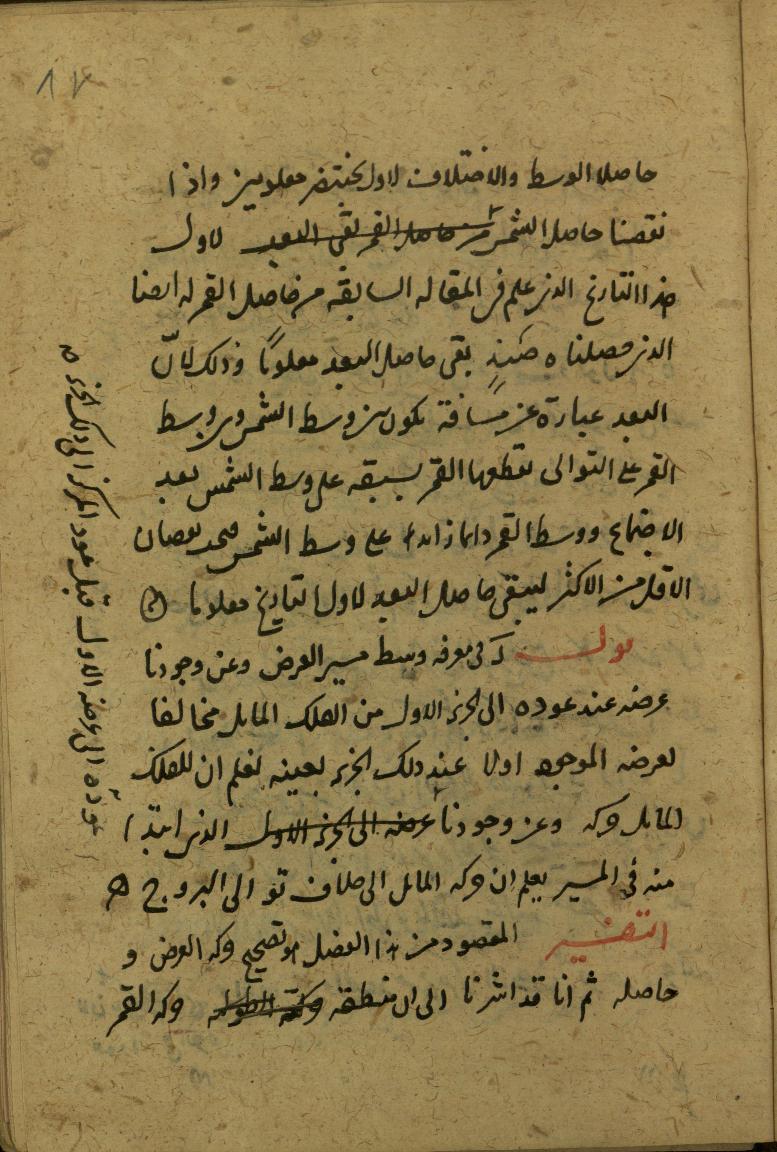 ٨٧
حاصلا الوسط والاختلاف لاول بختنصر معلومين واذا
نقصنا حاصل الشمس من حاصل القمر بقى البعد لاول
هذا التاريخ الذى علم فى المقاله السابقه من حاصل القمر له ايضا
الذى حصلناه حينئذٍ بقى حاصل البعد معلومًا وذلك لانّ
البعد عبارة عن مسافة تكون بين وسط الشمس وبين وسط
القمر على التوالى تقطعها القمر بسبقه على وسط الشمس بعد
الاجتماع ووسط القمر دائما زائد على وسط الشمس فبعد نقصان
الاقل من الاكثر ليبقى حاصل البعد لاول التاريخ معلوما
قوله فى معرفه وسط مسير العرض وعن وجودنا
عرضه عند عوده الى الجزء الاول من الفلك المايل مخالفا
لعرضه الموجود اولا عند ذلك الجزء بعينه نعلم ان للفلك
المايل حركه وعن وجودنا عرضه الى الجزء الاول الذى ابتدا
منه فى المسير يعلم ان حركه المايل الى خلاف توالى البروج
التفسير المقصود من هذا الفصل هو تصحيح حركه العرض و
حاصله ثم انا قد اشرنا الى ان منطقه حركه القمر
عودته الى عرضه الاول قبل عود المركز الى ذلك الجزء